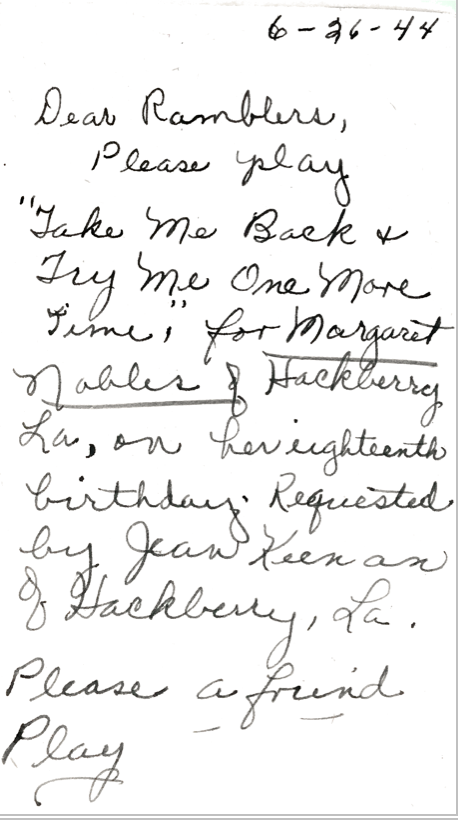 6-26-44
Dear Ramblers,
Please play
"Take Me Back &
Try Me One More
Time," for Margaret
Nobles of Hackberry
La, on her eighteenth
birthday. Requested
by Jean Keenan
of Hackberry, La.
Please a friend
Play